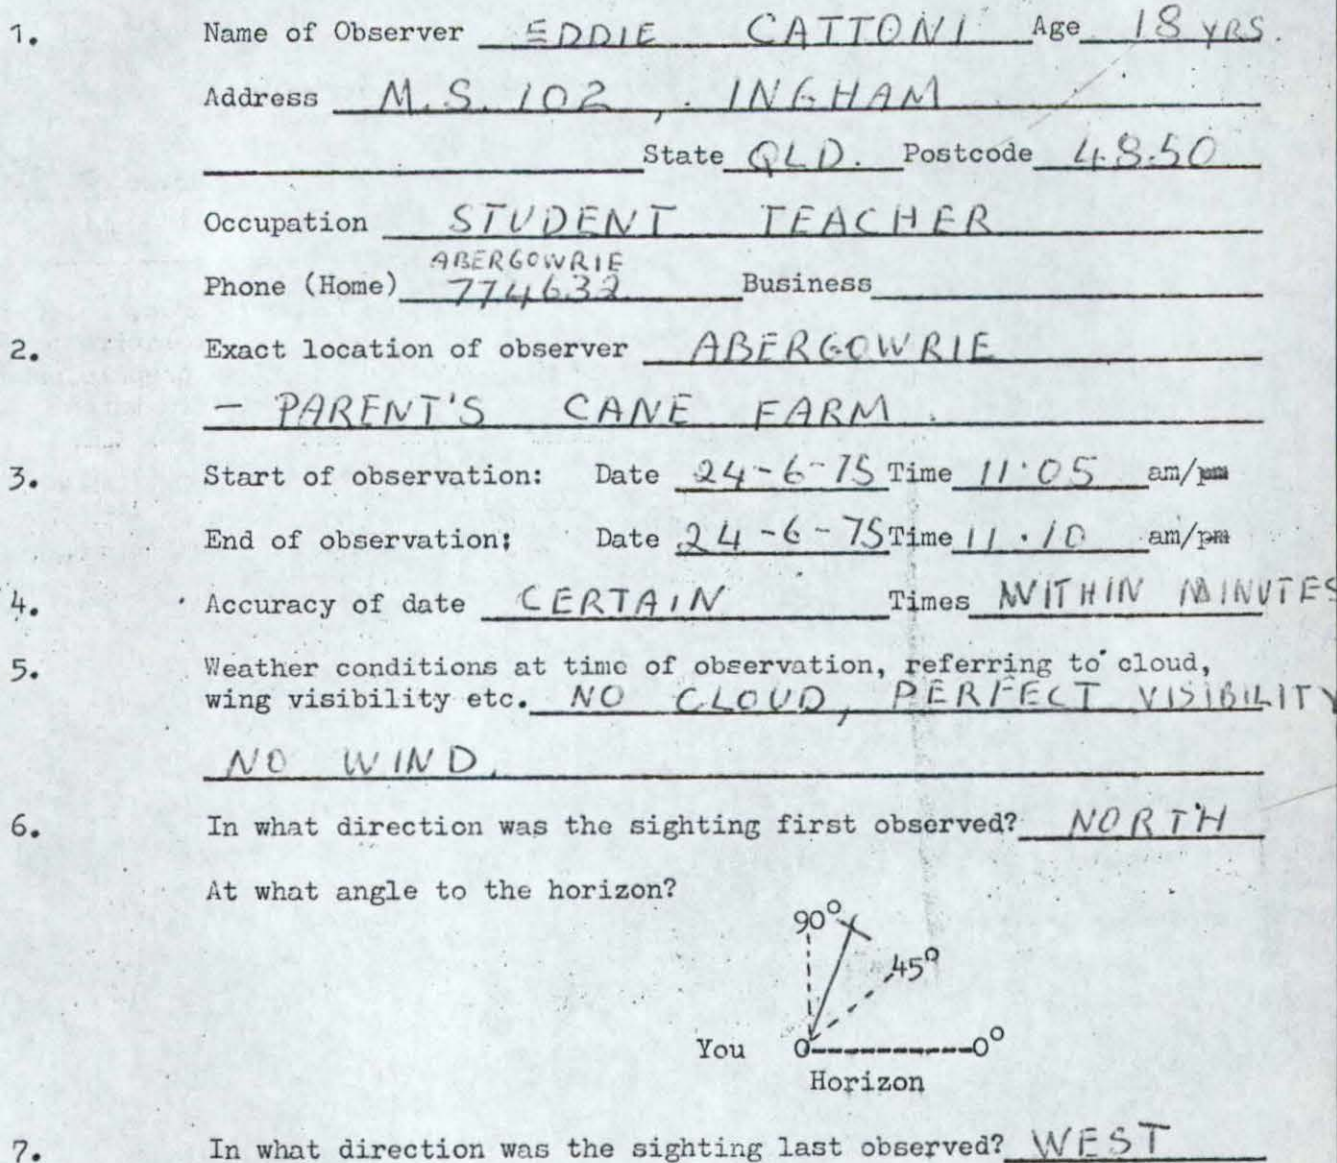 1. Name of Observer EDDIE CATTONI Age 18 YRS.
Address M.S. 102, INGHAM
State QLD. Postcode 4850
Occupation STUDENT TEACHER
ABERGOWRIE
Phone (Home) 774632 Business
2. Exact location of observer ABERGOWRIE
- PARENT'S CANE FARM.
3. Start of observation: Date 24-6-75 Time 11.05 am/pm
End of observation: Date 24-6-75 Time 11.10 am/pm
4. Accuracy of date CERTAIN Times WITHIN MINUTES
5. Weather conditions at time of observation, referring to cloud,
wing visibility etc. NO CLOUD, PERFECT VISIBILITY
NO WIND.
6. In what direction was the sighting first observed? NORTH
At what angle to the horizon?
90°
45°
You 0 0°
Horizon
7. In what direction was the sighting last observed? WEST